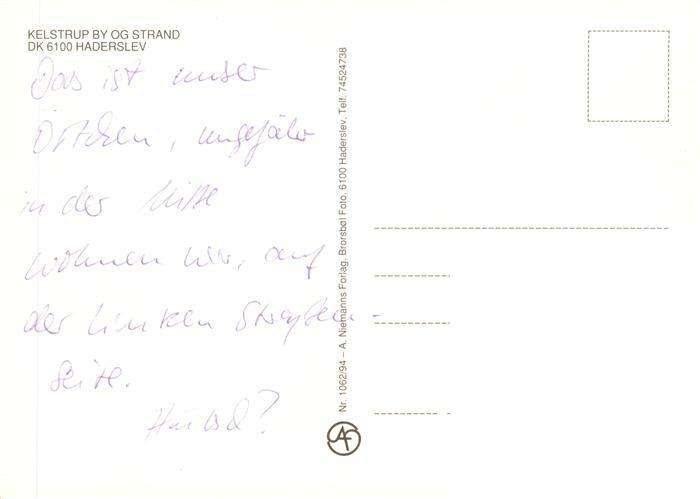 KELSTRUP BY OG STRAND
DK 6100 HADERSLEV
Das ist unser
Örtchen, ungefähr
in der Mitte
wohnen wir, auf
der linken Straßen-
seite.
Hübsch?
Nr. 1062/94 – A. Niemanns Forlag, Brorsbøl Foto, 6100 Haderslev, Telf. 74524738
AF